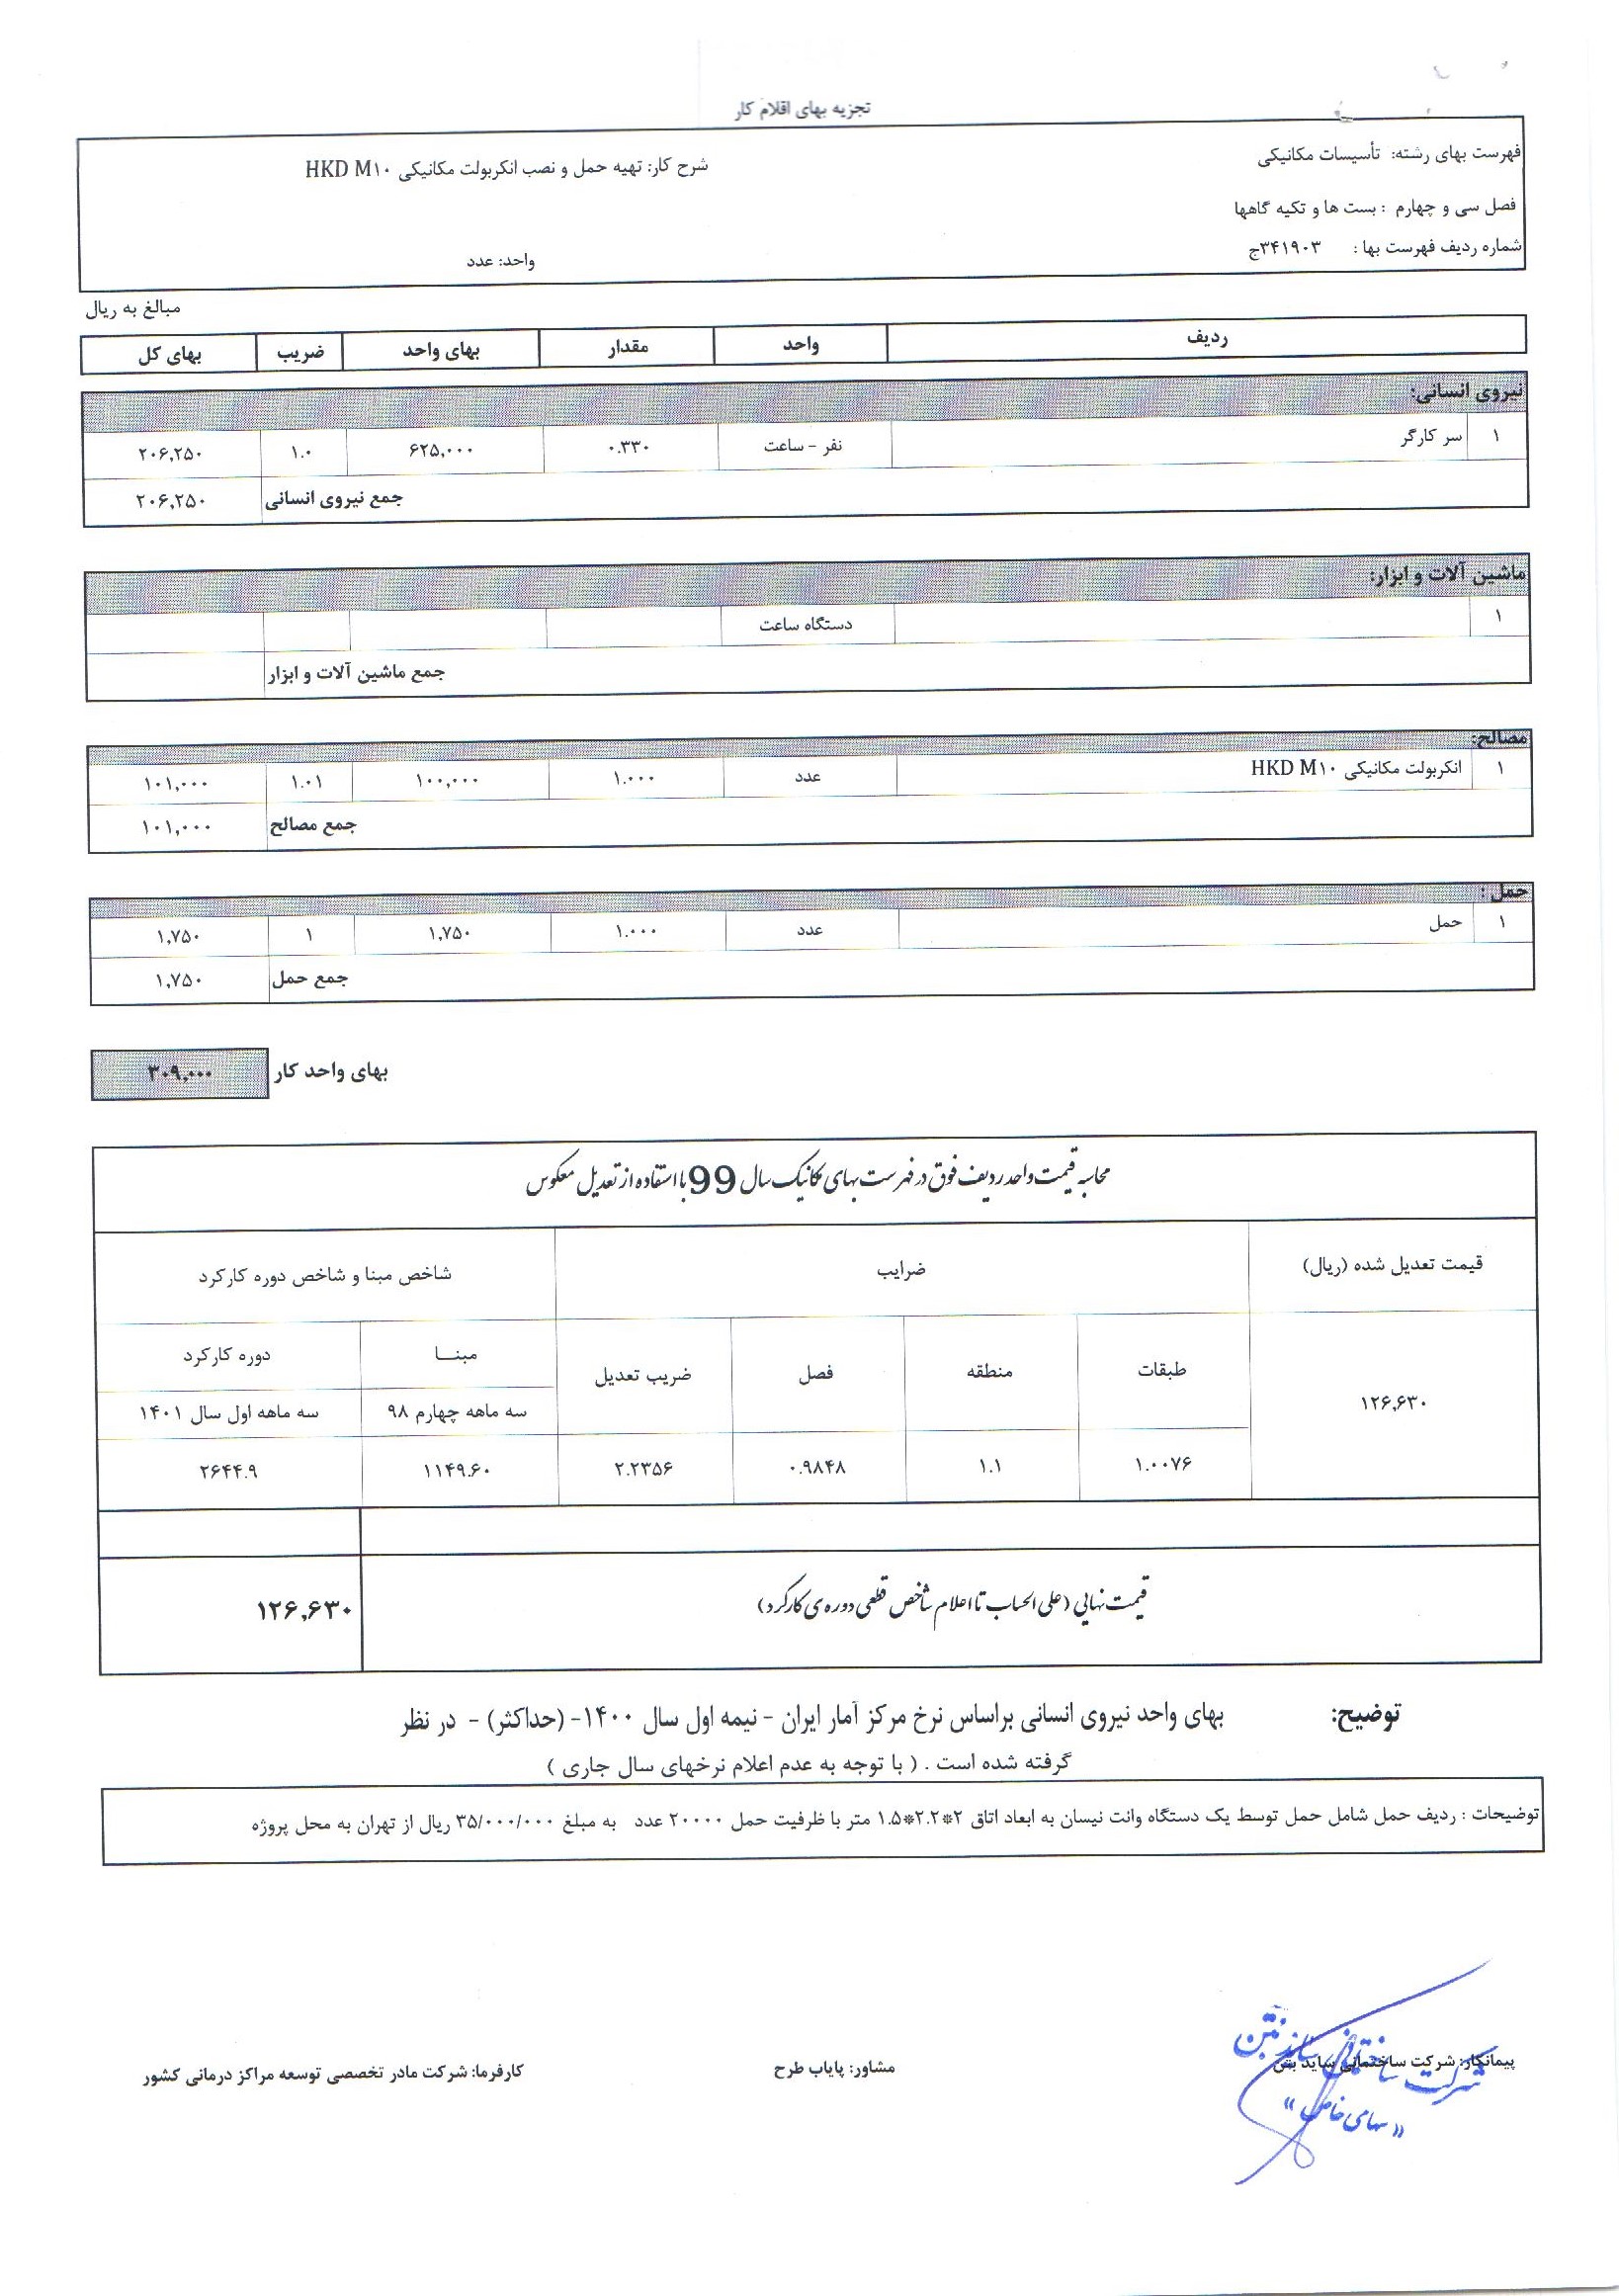 تجزیه بهای اقلام کار
فهرست بهای رشته: تأسیسات مکانیکی
شرح کار: تهیه حمل و نصب انکربولت مکانیکی HKD M۱۰
فصل سی و چهارم : بست ها و تکیه گاهها
شماره ردیف فهرست بها : ۳۴۱۹۰۳ج
واحد: عدد
مبالغ به ریال
ردیف واحد مقدار بهای واحد ضریب بهای کل
نیروی انسانی:
۱ سر کارگر نفر - ساعت ۰.۳۳۰ ۶۲۵,۰۰۰ ۱.۰ ۲۰۶,۲۵۰
جمع نیروی انسانی ۲۰۶,۲۵۰
ماشین آلات و ابزار:
۱ دستگاه ساعت
جمع ماشین آلات و ابزار
مصالح:
۱ انکربولت مکانیکی HKD M۱۰ عدد ۱.۰۰۰ ۱۰۰,۰۰۰ ۱.۰۱ ۱۰۱,۰۰۰
جمع مصالح ۱۰۱,۰۰۰
حمل :
۱ حمل عدد ۱.۰۰۰ ۱,۷۵۰ ۱ ۱,۷۵۰
جمع حمل ۱,۷۵۰
بهای واحد کار ۳۰۹,۰۰۰
محاسبه قیمت واحد ردیف فوق در فهرست بهای مکانیک سال 99 با استفاده از تعدیل معکوس
قیمت تعدیل شده (ریال) ضرایب شاخص مبنا و شاخص دوره کارکرد
طبقات منطقه فصل ضریب تعدیل مبنـــا دوره کارکرد
سه ماهه چهارم ۹۸ سه ماهه اول سال ۱۴۰۱
۱۲۶,۶۳۰ ۱.۰۰۷۶ ۱.۱ ۰.۹۸۴۸ ۲.۲۳۵۶ ۱۱۴۹.۶۰ ۲۶۴۴.۹
قیمت نهایی (علی الحساب تا اعلام شاخص قطعی دوره ی کارکرد) ۱۲۶,۶۳۰
توضیح: بهای واحد نیروی انسانی براساس نرخ مرکز آمار ایران - نیمه اول سال ۱۴۰۰- (حداکثر) - در نظر
گرفته شده است . ( با توجه به عدم اعلام نرخهای سال جاری )
توضیحات : ردیف حمل شامل حمل توسط یک دستگاه وانت نیسان به ابعاد اتاق ۲*۲.۲*۱.۵ متر با ظرفیت حمل ۲۰۰۰۰ عدد به مبلغ ۳۵/۰۰۰/۰۰۰ ریال از تهران به محل پروژه
پیمانکار: شرکت ساختمانی ساید بتن
مشاور: پایاب طرح
کارفرما: شرکت مادر تخصصی توسعه مراکز درمانی کشور
شرکت ساختمانی ساید بتن
«سهامی خاص»